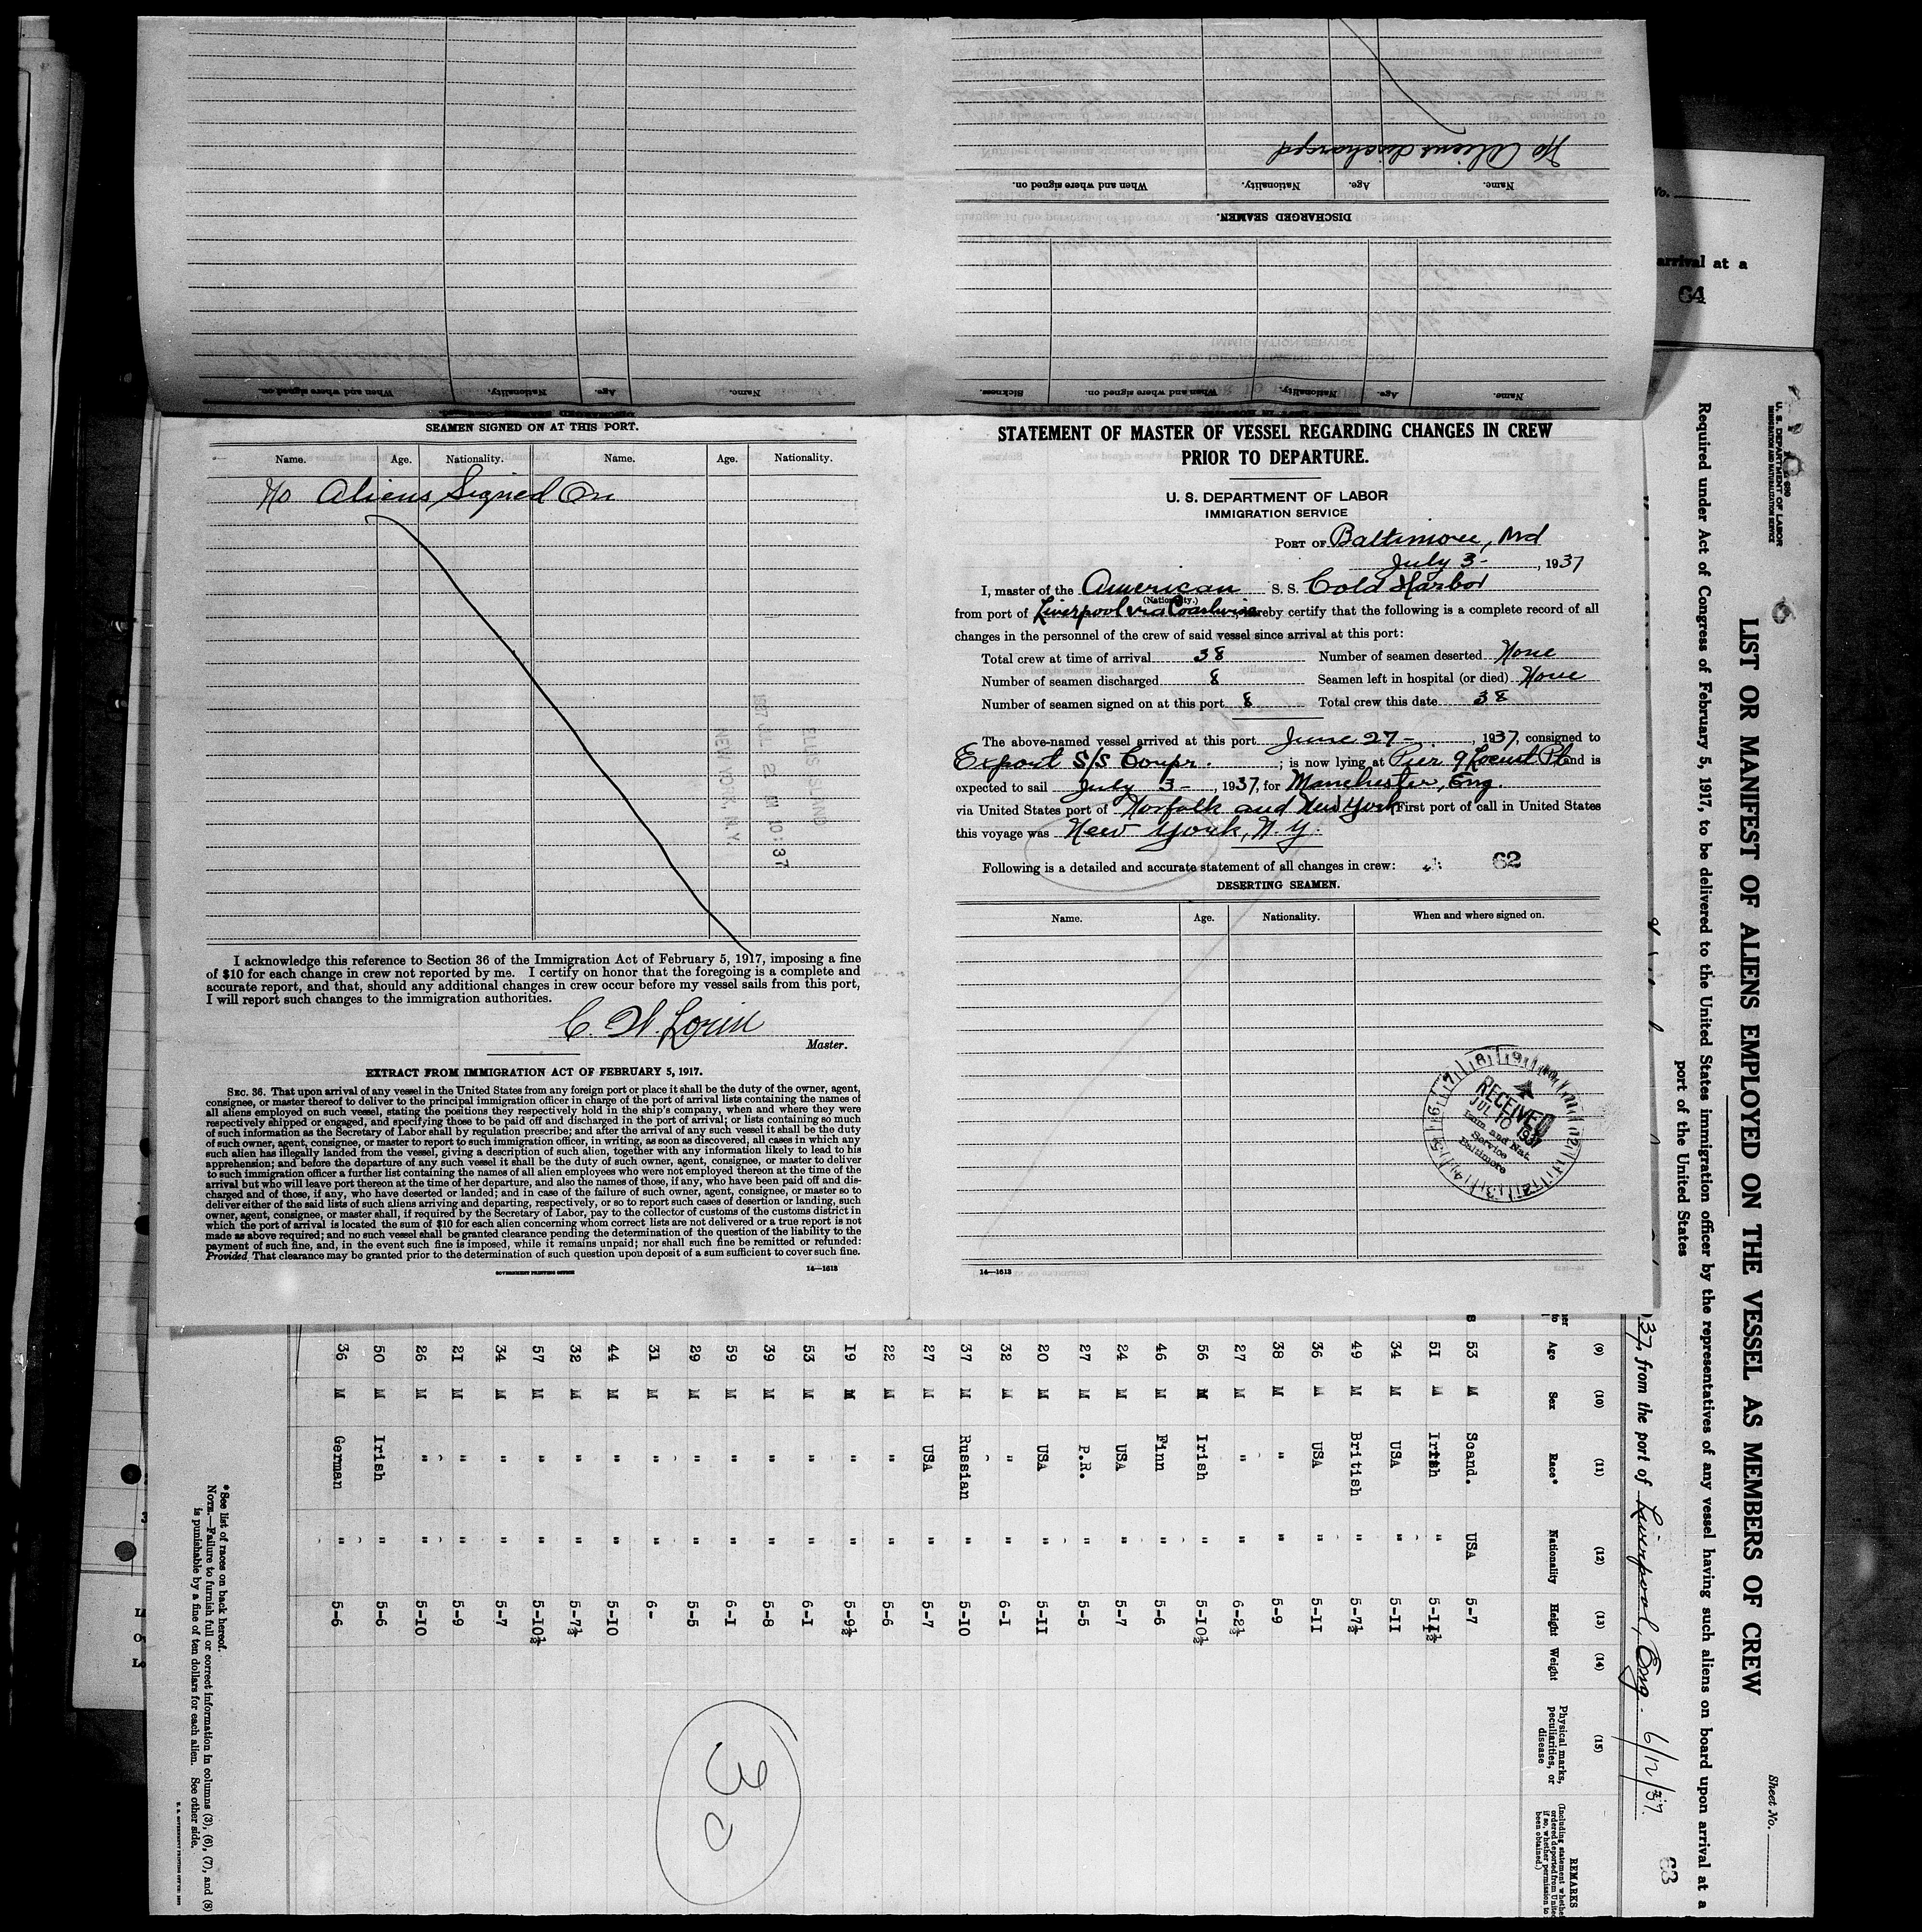 No Aliens discharged
Name. Age. Nationality. When and where signed on.
DISCHARGED SEAMEN.
Name. Age. Nationality. When and where signed on. Sickness.
Name. Age. Nationality. When and where signed on.
SEAMEN SIGNED ON AT THIS PORT.
Name. Age. Nationality. Name. Age. Nationality.
No Aliens Signed On
ELLIS ISLAND
1937 JUL 21 AM 10:37
NEW YORK, N.Y.
I acknowledge this reference to Section 36 of the Immigration Act of February 5, 1917, imposing a fine
of $10 for each change in crew not reported by me. I certify on honor that the foregoing is a complete and
accurate report, and that, should any additional changes in crew occur before my vessel sails from this port,
I will report such changes to the immigration authorities.
C. W. Lorin
Master.
EXTRACT FROM IMMIGRATION ACT OF FEBRUARY 5, 1917.
SEC. 36. That upon arrival of any vessel in the United States from any foreign port or place it shall be the duty of the owner, agent,
consignee, or master thereof to deliver to the principal immigration officer in charge of the port of arrival lists containing the names of
all aliens employed on such vessel, stating the positions they respectively hold in the ship's company, when and where they were
respectively shipped or engaged, and specifying those to be paid off and discharged in the port of arrival; or lists containing so much
of such information as the Secretary of Labor shall by regulation prescribe; and after the arrival of any such vessel it shall be the duty
of such owner, agent, consignee, or master to report to such immigration officer, in writing, as soon as discovered, all cases in which any
such alien has illegally landed from the vessel, giving a description of such alien, together with any information likely to lead to his
apprehension; and before the departure of any such vessel it shall be the duty of such owner, agent, consignee, or master to deliver
to such immigration officer a further list containing the names of all alien employees who were not employed thereon at the time of the
arrival but who will leave port thereon at the time of her departure, and also the names of those, if any, who have been paid off and dis-
charged and of those, if any, who have deserted or landed; and in case of the failure of such owner, agent, consignee, or master so to
deliver either of the said lists of such aliens arriving and departing, respectively, or so to report such cases of desertion or landing, such
owner, agent, consignee, or master shall, if required by the Secretary of Labor, pay to the collector of customs of the customs district in
which the port of arrival is located the sum of $10 for each alien concerning whom correct lists are not delivered or a true report is not
made as above required; and no such vessel shall be granted clearance pending the determination of the question of the liability to the
payment of such fine, and, in the event such fine is imposed, while it remains unpaid; nor shall such fine be remitted or refunded:
Provided, That clearance may be granted prior to the determination of such question upon deposit of a sum sufficient to cover such fine.
GOVERNMENT PRINTING OFFICE 14—1613
STATEMENT OF MASTER OF VESSEL REGARDING CHANGES IN CREW
PRIOR TO DEPARTURE.
U. S. DEPARTMENT OF LABOR
IMMIGRATION SERVICE
PORT OF Baltimore, Md
July 3-, 1937
I, master of the American S. S. Cold Harbor
(Nationality.)
from port of Liverpool via Coastwise, hereby certify that the following is a complete record of all
changes in the personnel of the crew of said vessel since arrival at this port:
Total crew at time of arrival 38 Number of seamen deserted None
Number of seamen discharged 8 Seamen left in hospital (or died) None
Number of seamen signed on at this port 8 Total crew this date 38
The above-named vessel arrived at this port June 27-, 1937, consigned to
Export S/S Corpr.; is now lying at Pier 9 Locust Pt and is
expected to sail July 3-, 1937, for Manchester, Eng.
via United States port of Norfolk and New York First port of call in United States
this voyage was New York, N.Y.
Following is a detailed and accurate statement of all changes in crew: 62
DESERTING SEAMEN.
Name. Age. Nationality. When and where signed on.
RECEIVED
JUL 10 1937
Imm. and Nat.
Service
Baltimore
14—1613
No.
arrival at a
64
U. S. DEPARTMENT OF LABOR
IMMIGRATION AND NATURALIZATION SERVICE
Sheet No.
LIST OR MANIFEST OF ALIENS EMPLOYED ON THE VESSEL AS MEMBERS OF CREW
Required under Act of Congress of February 5, 1917, to be delivered to the United States immigration officer by the representatives of any vessel having such aliens on board upon arrival at a
port of the United States
63
37, from the port of Liverpool, Eng. 6/12/37.
(9) (10) (11) (12) (13) (14) (15)
Age Sex Race* Nationality Height Weight Physical marks, peculiarities, or disease REMARKS
53 M Scand. USA 5-7
51 M Irish " 5-11½
34 M USA " 5-11
49 M British " 5-7½
36 M USA " 5-11
38 M " " 5-9
27 M " " 6-2½
56 M Irish " 5-10½
46 M Finn " 5-6
24 M USA " 5-7
27 M P.R. " 5-5
20 M USA " 5-11
32 M " " 6-1
37 M Russian " 5-10
27 M USA " 5-7
22 M " " 5-6
19 M " " 5-9½
53 M " " 6-1
39 M " " 5-8
59 M " " 6-1
29 M " " 5-5
31 M " " 6-
44 M " " 5-10
32 M " " 5-7½
57 M " " 5-10½
34 M " " 5-7
21 M " " 5-9
26 M " " 5-10
50 M Irish " 5-6
36 M German " 5-6
30
*See list of races on back hereof.
NOTE.—Failure to furnish full or correct information in columns (3), (6), (7), and (8)
is punishable by a fine of ten dollars for each alien. See other side.